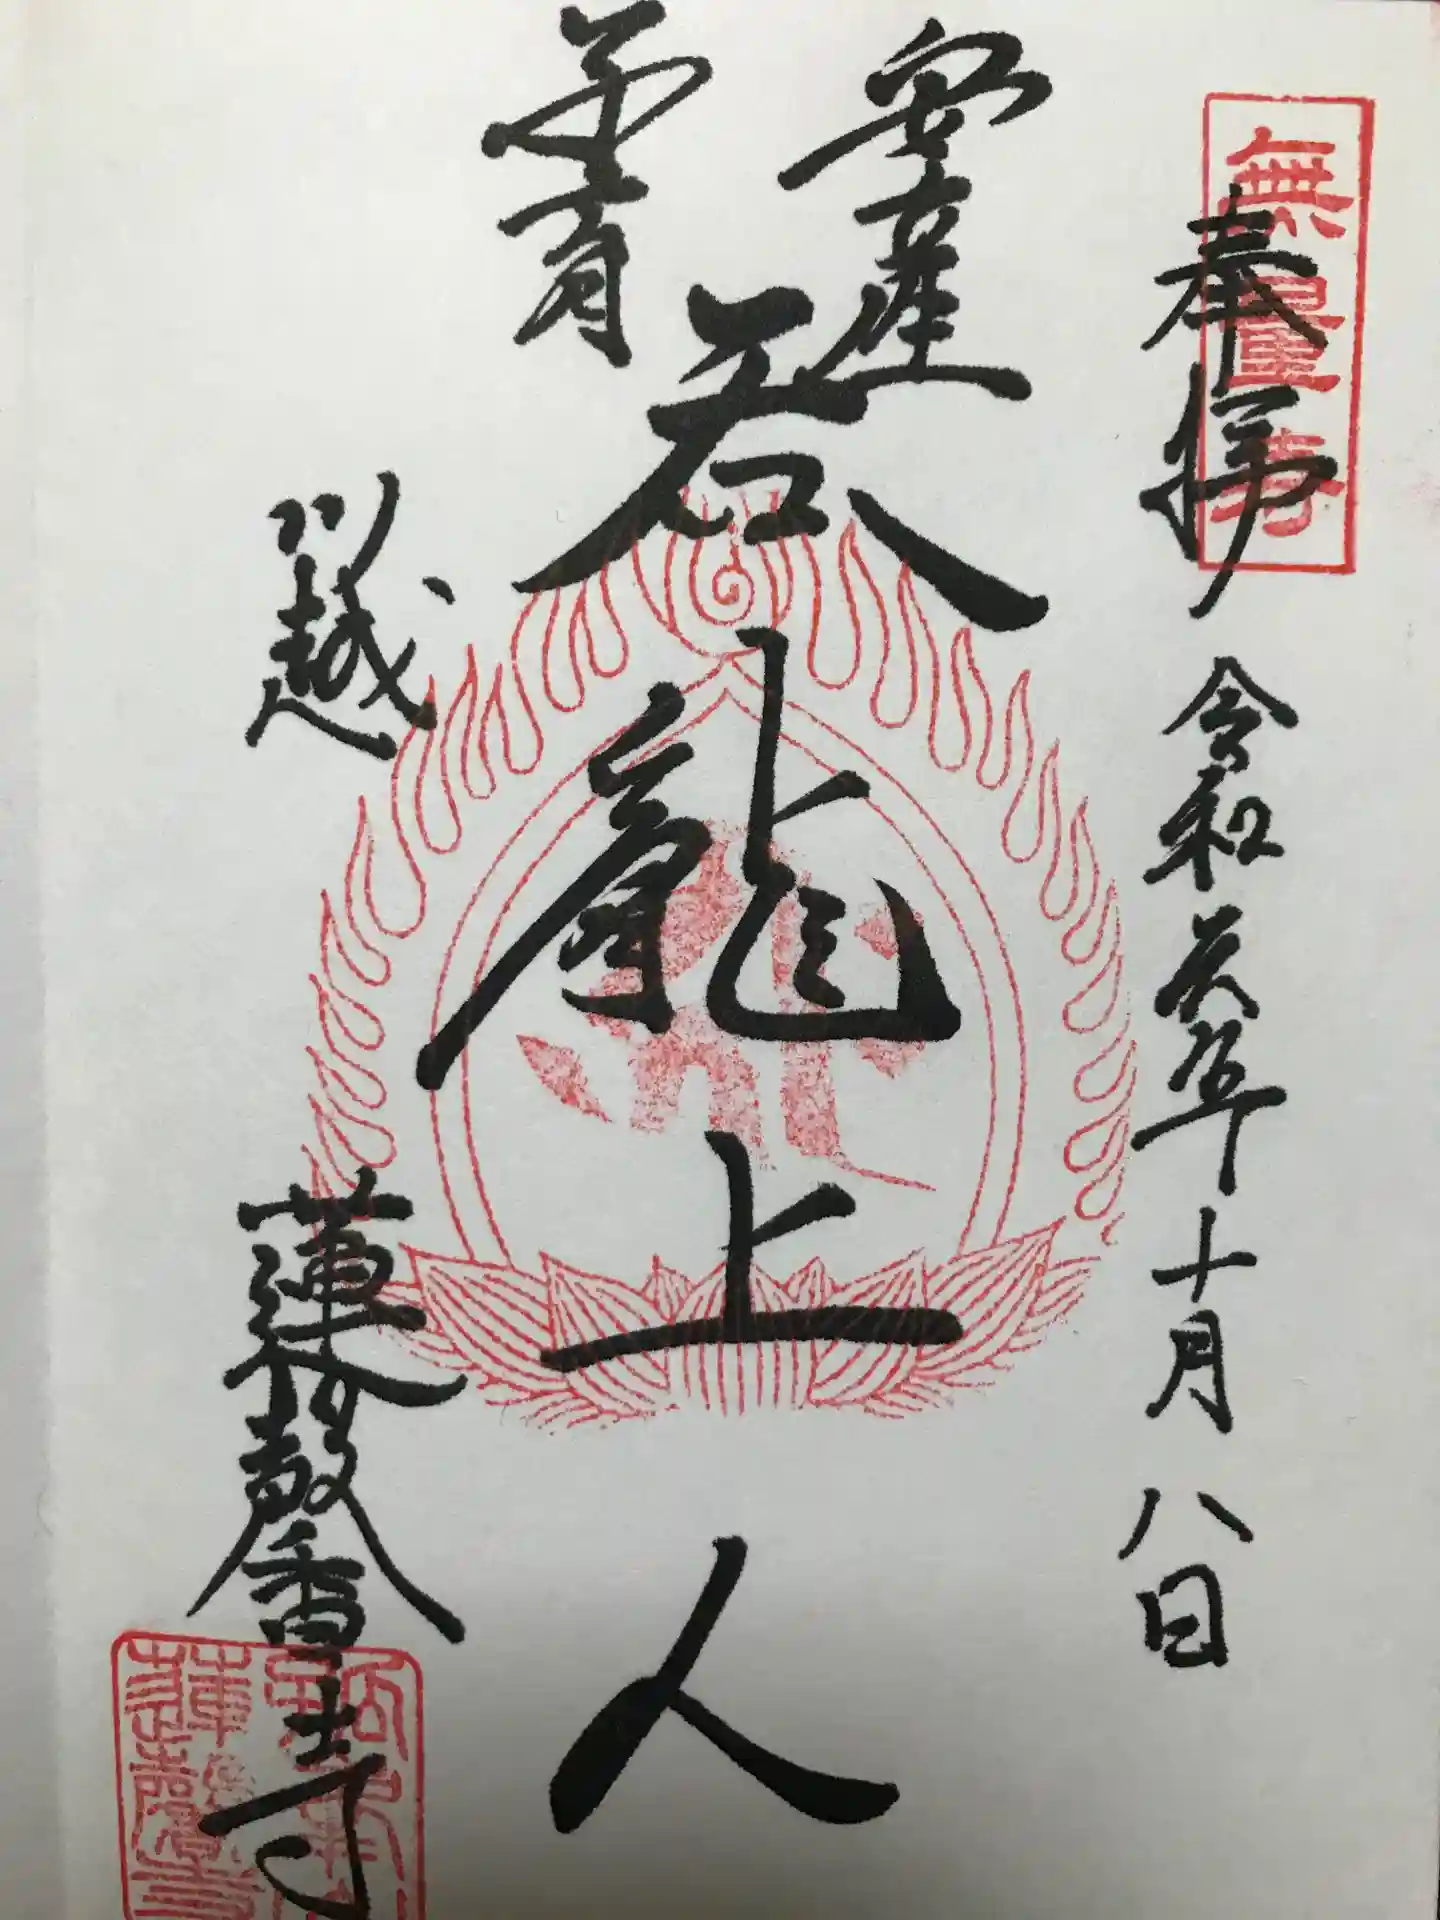 無量寿
奉拝 令和六年十月八日
安産
子育
呑龍上人
川越
蓮馨寺